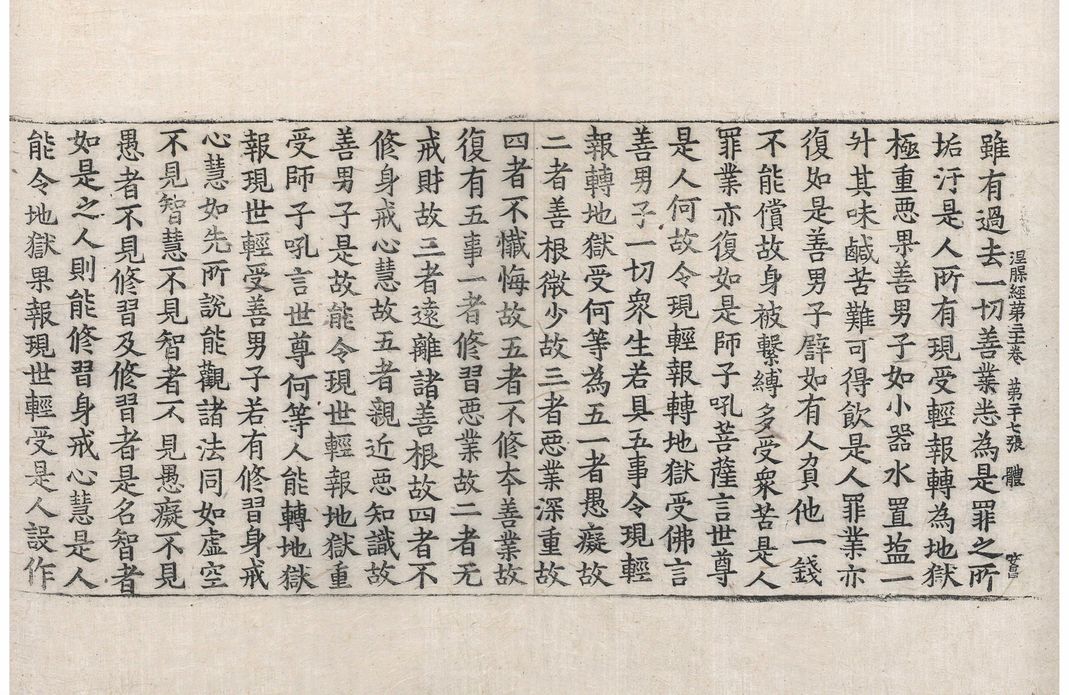 雖有過去一切善業悉為是罪之所
涅槃經第三十卷　第二十七張　體
垢汙是人所有現受輕報轉為地獄
極重惡果善男子如小器水置塩一
升其味鹹苦難可得飲是人罪業亦
復如是善男子辟如有人負他一錢
不能償故身被繫縛多受衆苦是人
罪業亦復如是師子吼菩薩言世尊
是人何故令現輕報轉地獄受佛言
善男子一切衆生若具五事令現輕
報轉地獄受何等為五一者愚癡故
二者善根微少故三者惡業深重故
四者不懺悔故五者不修夲善業故
復有五事一者修習惡業故二者无
戒財故三者遠離諸善根故四者不
修身戒心慧故五者親近惡知識故
善男子是故能令現世輕報地獄重
受師子吼言世尊何等人能轉地獄
報現世輕受善男子若有修習身戒
心慧如先所說能觀諸法同如虛空
不見智慧不見智者不見愚癡不見
愚者不見修習及修習者是名智者
如是之人則能修習身戒心慧是人
能令地獄果報現世輕受是人設作